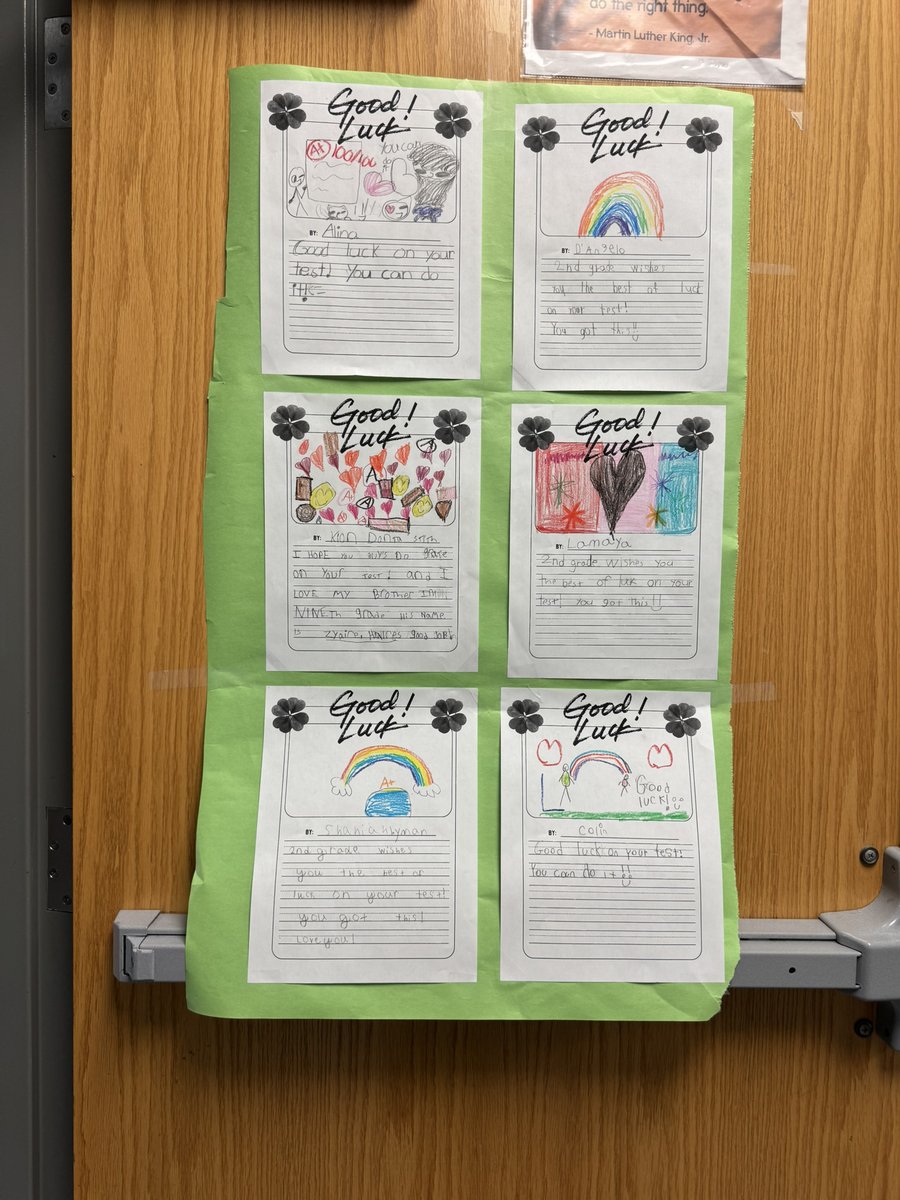 do the right thing.
- Martin Luther King, Jr.
Good!
Luck
A+ 100/100
You can
do
BY: Alina
Good luck on your
test! You can do
it!
Good!
Luck
BY: D'Angelo
2nd grade wishes
you the best of luck
on your test!
You got this!!
Good!
Luck
A
BY: Kion Donta
I HOPE You
on Your test! and I
LOVE MY Brother
NINETh grade His NAME
is Zyaire, good JOB!
Good!
Luck
BY: Lamaya
2nd grade wishes you
the best of luk on your
test! you got this!!
Good!
Luck
A+
BY: Shaniah hyman
2nd grade wishes
you the best of
luck on your test!
you got this!
Love you!
Good!
Luck
Good
luck!!
BY: Colin
Good luck on your test!
You can do it!!